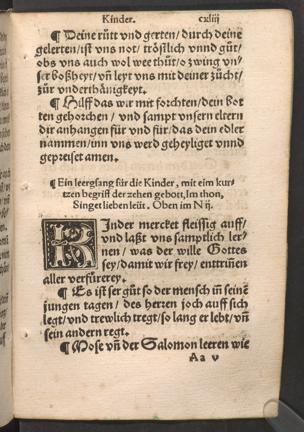 Kinder. cxliij
¶ Deine rüt vnd gerten/durch deine
gelerten/ist vns not/ tröstlich vnnd güt/
obs vns auch wol wee thüt/ ozwing vn-
ser boßheyt/vñ leyt vns mit deiner zücht/
zür vnderthänigkeyt.
¶ Hilff das wir mit forchten/dein bot
ten gehorchen/ vnd sampt vnsern eltern
dir anhangen für vnd für/das dein edler
nammen/inn vns werd geheyliget vnnd
gepreiset amen.
¶ Ein leergsang für die Kinder, mit eim kur-
tzen begriff der zehen gebott, Im thon,
Singet lieben leüt. Oben im N ij.
KInder mercket fleissig auff/
vnd laßt vns samptlich ler-
nen/ was der wille Gottes
sey/damit wir frey/ enttriñen
aller verfürerey.
¶ Es ist ser güt so der mensch iñ seinē
jungen tagen/ des herzen joch auff sich
legt/vnd trewlich tregt/so lang er lebt/vñ
sein andern regt.
¶ Mose vñ der Salomon leeren wie
Aa v